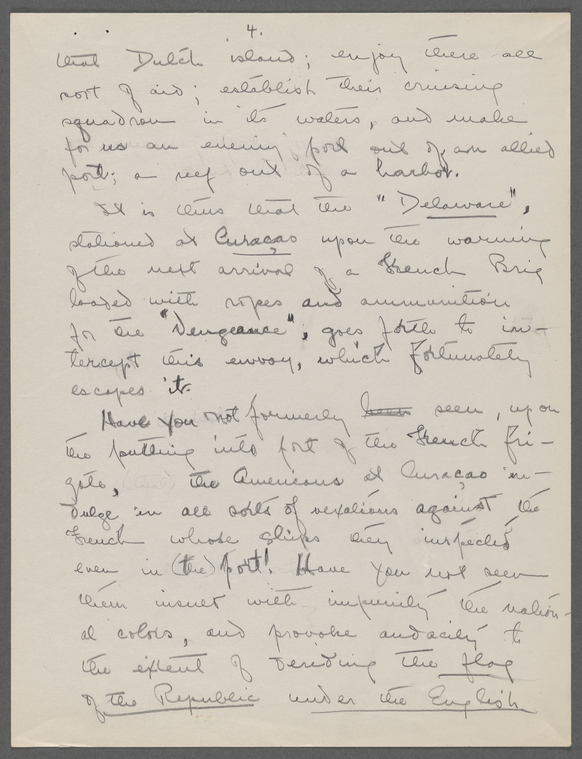 4.
that Dutch island; enjoy there all
sort of aid; establish their cruising
squadron in its waters, and make
for us an enemy port out of an allied
port; a reef out of a harbor.
It is thus that the "Delaware",
stationed at Curaçao upon the warning
of the next arrival of a French Brig
loaded with ropes and ammunition
for the "Vengeance", goes forth to in-
tercept this envoy, which fortunately
escapes it.
Have you not formerly been seen, upon
the putting into port of the French fri-
gate, the Americans at Curaçao in-
dulge in all sorts of vexations against the
French whose ships they inspected
even in (the) port! Have you not seen
them insult with impunity the nation-
al colors, and provoke audacity to
the extent of deriding the flag
of the Republic under the English